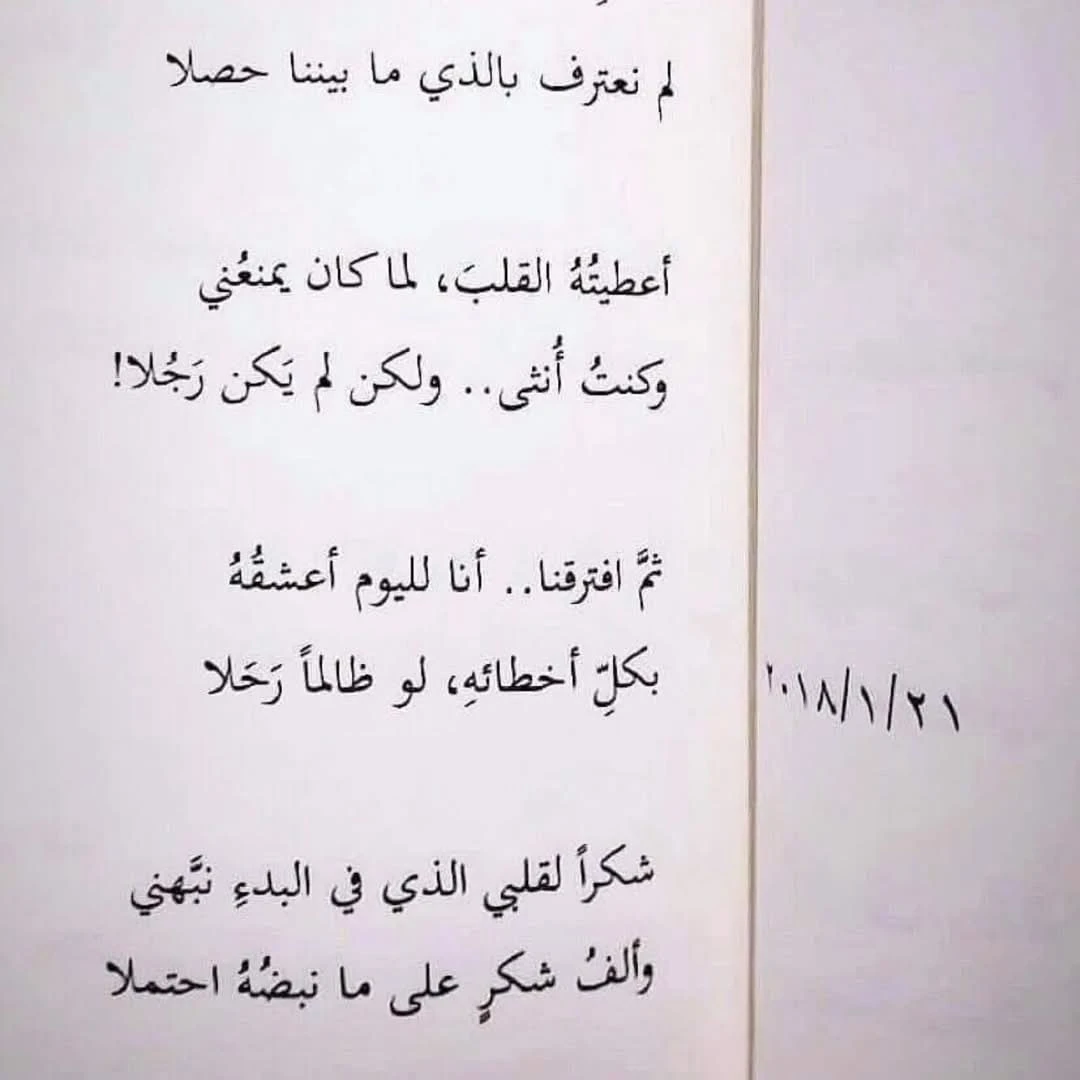 لم نعترف بالذي ما بيننا حصلا
أعطيتُهُ القلبَ، لما كان يمنعُني
وكنتُ أُنثى.. ولكن لم يَكن رَجُلا!
ثمَّ افترقنا.. أنا لليوم أعشقُهُ
بكلِّ أخطائهِ، لو ظالماً رَحَلا
٢٠١٨/١/٢١
شكراً لقلبي الذي في البدءِ نبَّهني
وألفُ شكرٍ على ما نبضُهُ احتملا